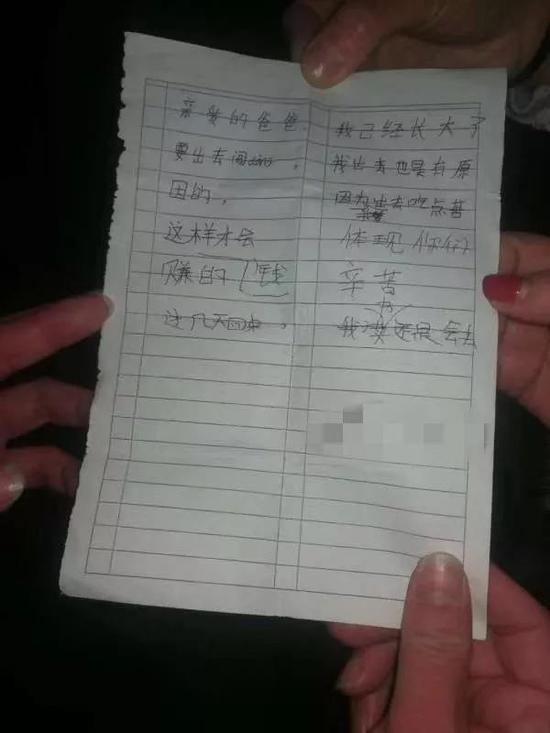 亲爱的爸爸. 我已经长大了
要出去闯闯。 我出去也是有原
因的, 因为出去吃点苦
这样才会 体现你们
赚的钱 辛苦
这几天回来。 我 还是会去